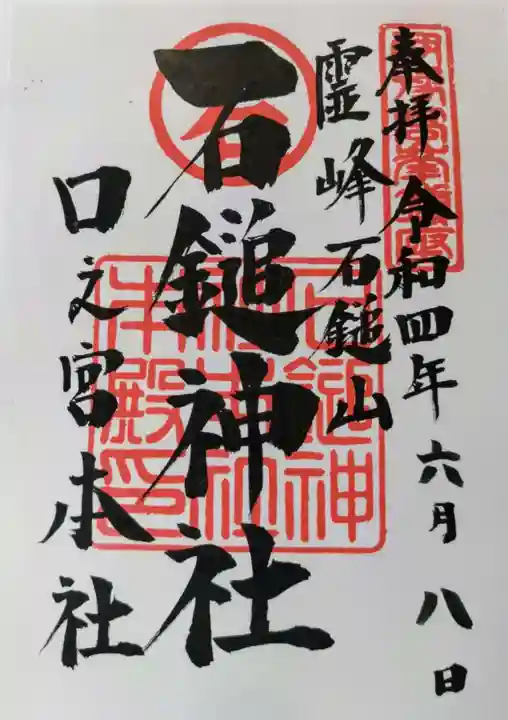 奉拝令和四年六月八日
霊峰石鎚山
石鎚神社
口之宮本社
石鎚神
社本社
本殿印